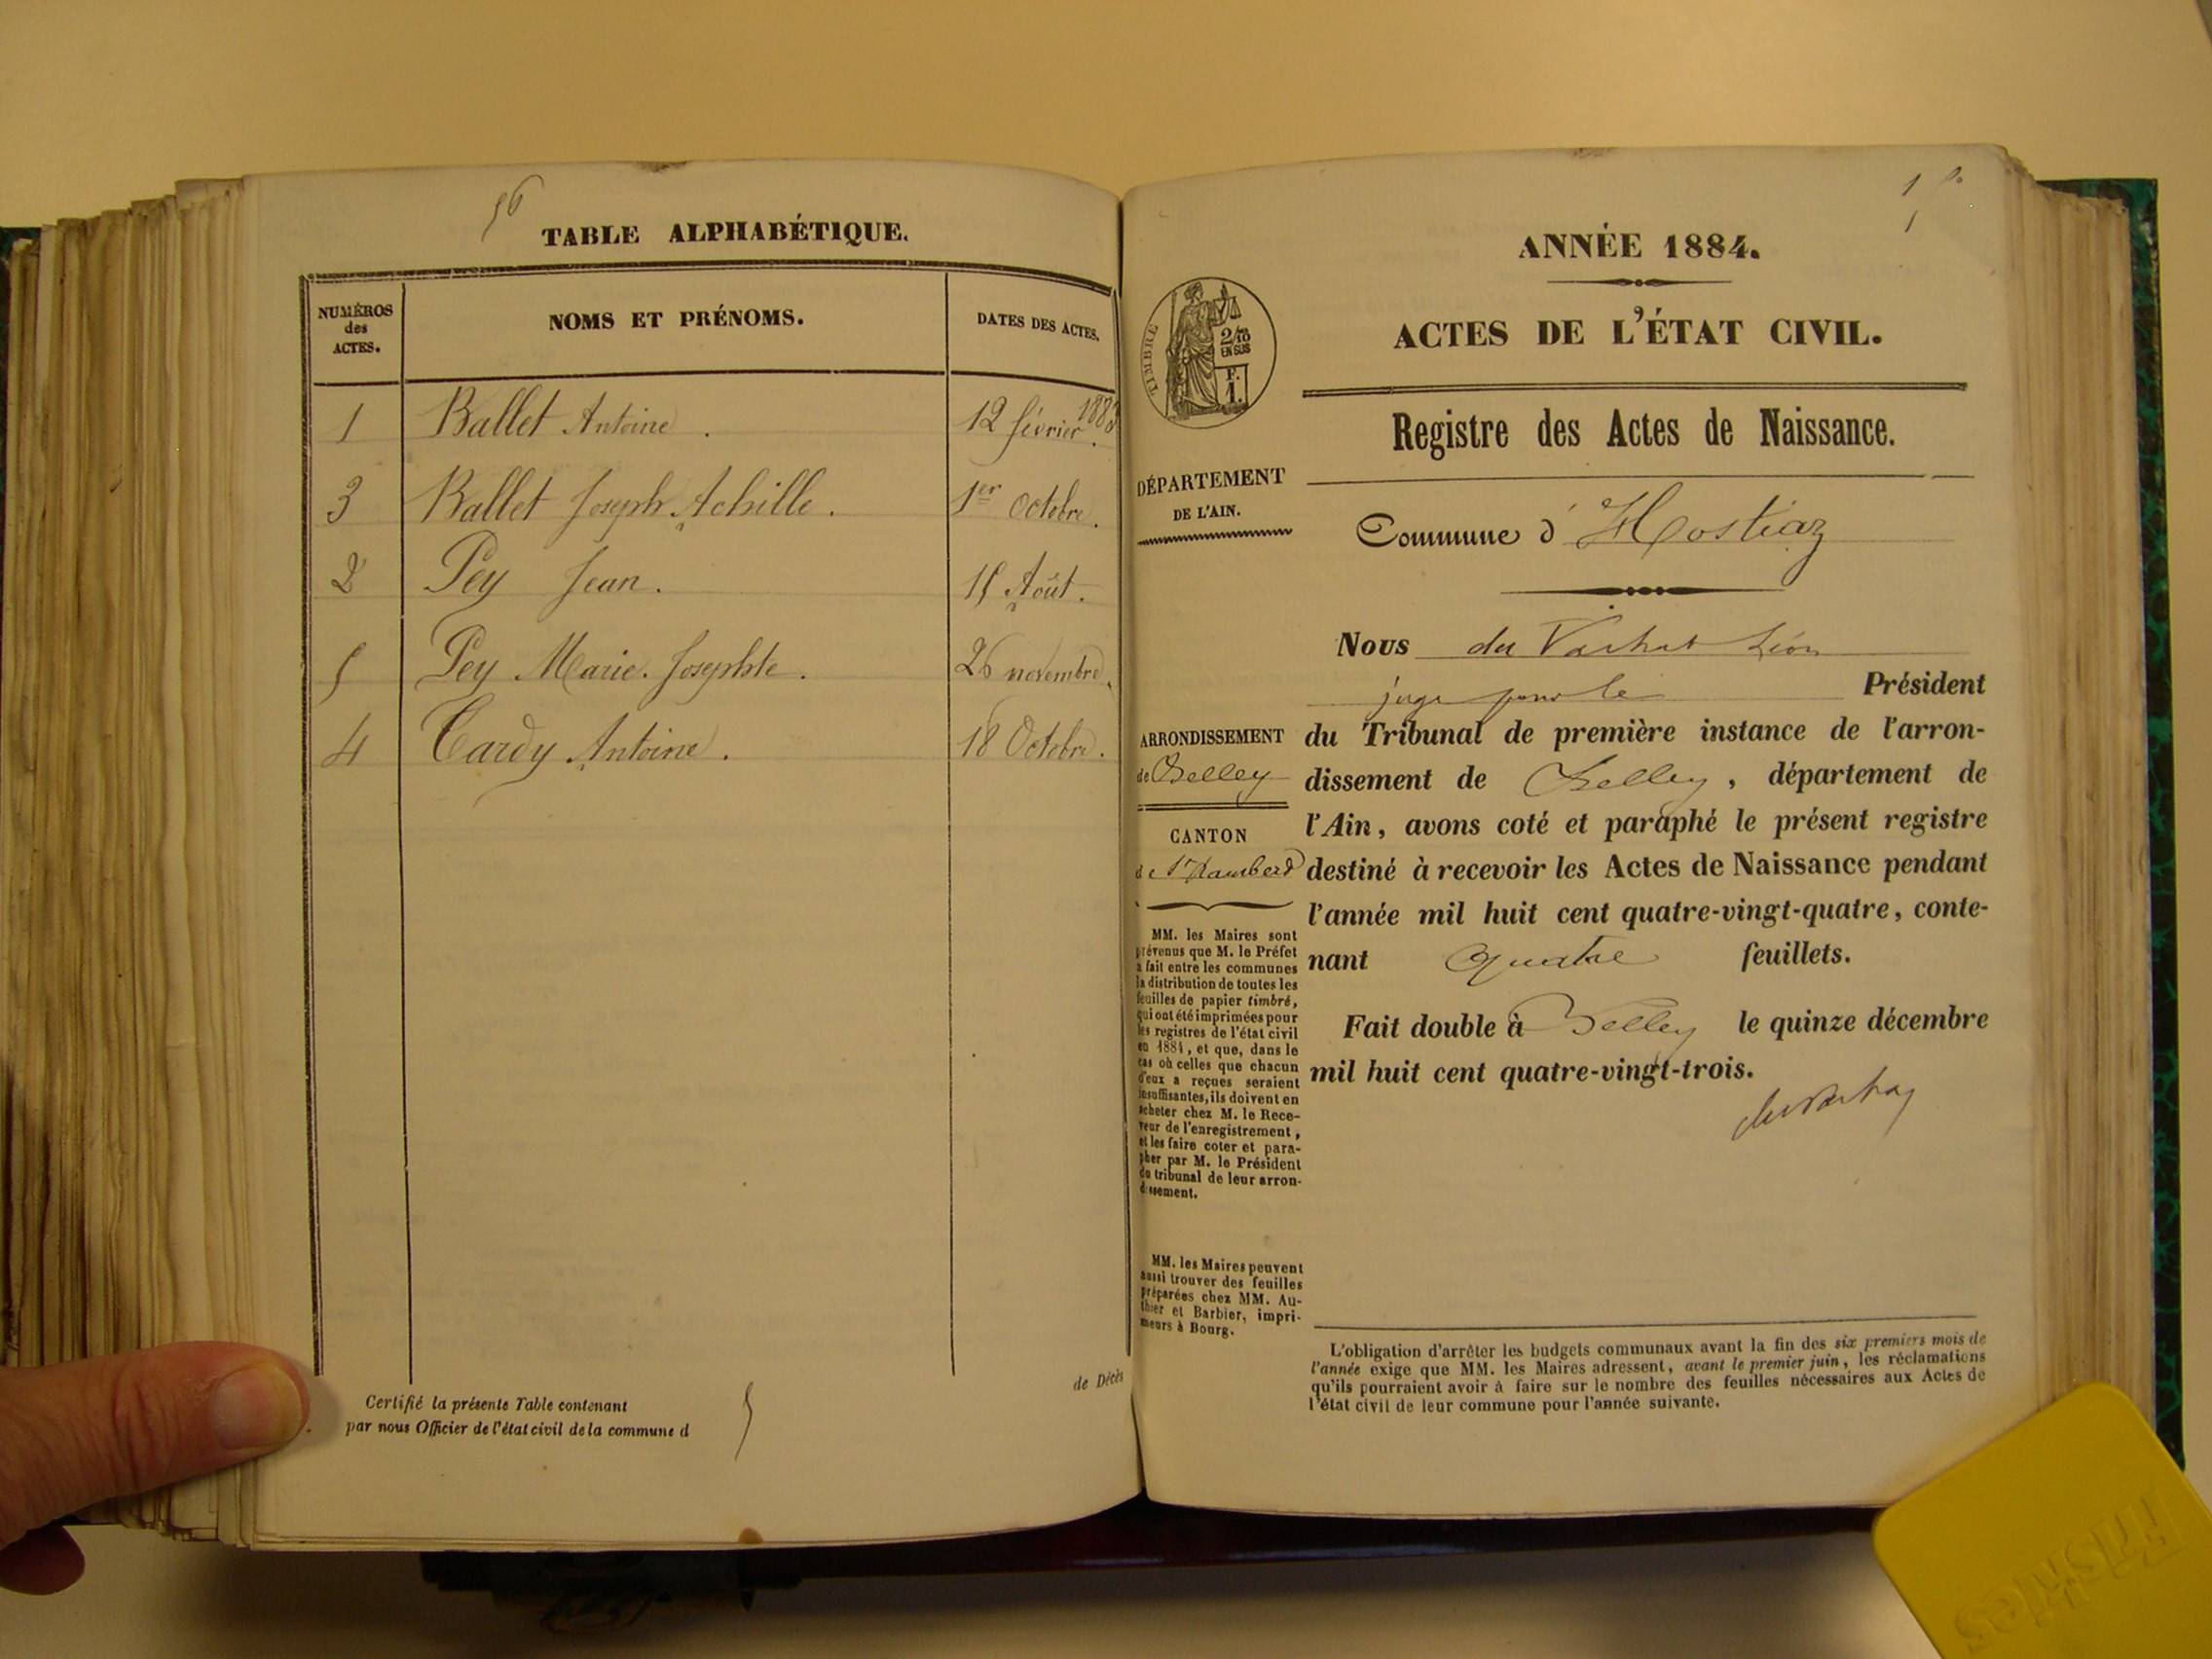 56
TABLE ALPHABÉTIQUE.
NUMÉROS
des
ACTES.
NOMS ET PRÉNOMS.
DATES DES ACTES.
1 Ballet Antoine. 12 février 1883.
3 Ballet Joseph Achille. 1er Octobre.
2 Pey Jean. 15 Août.
5 Pey Marie. Josephte. 26 novembre.
4 Tardy Antoine. 18 Octobre.
de Décès
Certifié la présente Table contenant
par nous Officier de l'état civil de la commune d
1
1
ANNÉE 1884.
ACTES DE L'ÉTAT CIVIL.
TIMBRE
2/10
EN SUS
F.
1.
Registre des Actes de Naissance.
DÉPARTEMENT
DE L'AIN.
Commune d'Hostiaz
Nous du Vachat Léon
juge pour le Président
ARRONDISSEMENT
de Belley
CANTON
de St Rambert
du Tribunal de première instance de l'arron-
dissement de Belley, département de
l'Ain, avons coté et paraphé le présent registre
destiné à recevoir les Actes de Naissance pendant
l'année mil huit cent quatre-vingt-quatre, conte-
nant quatre feuillets.
Fait double à Belley le quinze décembre
mil huit cent quatre-vingt-trois.
du Vachat
MM. les Maires sont
prévenus que M. le Préfet
a fait entre les communes
la distribution de toutes les
feuilles de papier timbré,
qui ont été imprimées pour
les registres de l'état civil
en 1884, et que, dans le
cas où celles que chacun
d'eux a reçues seraient
insuffisantes, ils doivent en
acheter chez M. le Rece-
veur de l'enregistrement,
et les faire coter et para-
pher par M. le Président
du tribunal de leur arron-
dissement.
MM. les Maires peuvent
aussi trouver des feuilles
préparées chez MM. Au-
thier et Barbier, impri-
meurs à Bourg.
L'obligation d'arrêter les budgets communaux avant la fin des six premiers mois de
l'année exige que MM. les Maires adressent, avant le premier juin, les réclamations
qu'ils pourraient avoir à faire sur le nombre des feuilles nécessaires aux Actes de
l'état civil de leur commune pour l'année suivante.
Friskies